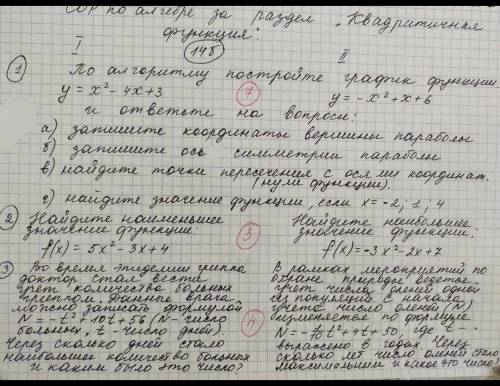 СОР по алгебре за раздел „Квадритичная
функция:
I (14б) II
① По алгоритму постройте график функции
y = x² - 4x + 3 ⑦ y = -x² + x + 6
и ответьте на вопросы:
а) запишите координаты вершины параболы
б) запишите ось симметрии параболы
в) найдите точки пересечения с осями координат.
(нули функции).
г) найдите значение функции, если x = -2; 1; 4
② Найдите наименьшее
значение функции:
f(x) = 5x² - 3x + 4
③
Найдите наибольшее
значение функции:
f(x) = -3x² - 2x + 7
③ Во время эпидемии гриппа
доктор стал вести
учёт количества больных
гриппом. Данные врача
можно записать формулой
N = -t² + 10t + 56 (N - число
больных, t - число дней).
Через сколько дней стало
наибольшее количество больных
и каким было это число?
④
В рамках мероприятий по
охране природы ведётся
учёт числа оленей одной
из популяций с начала
учёта число оленей (N)
изменяется по формуле
N = -1/10 t² + 4t + 50, где t -
выражено в годах. Через
сколько лет число оленей стало
максимальным и какое это число?